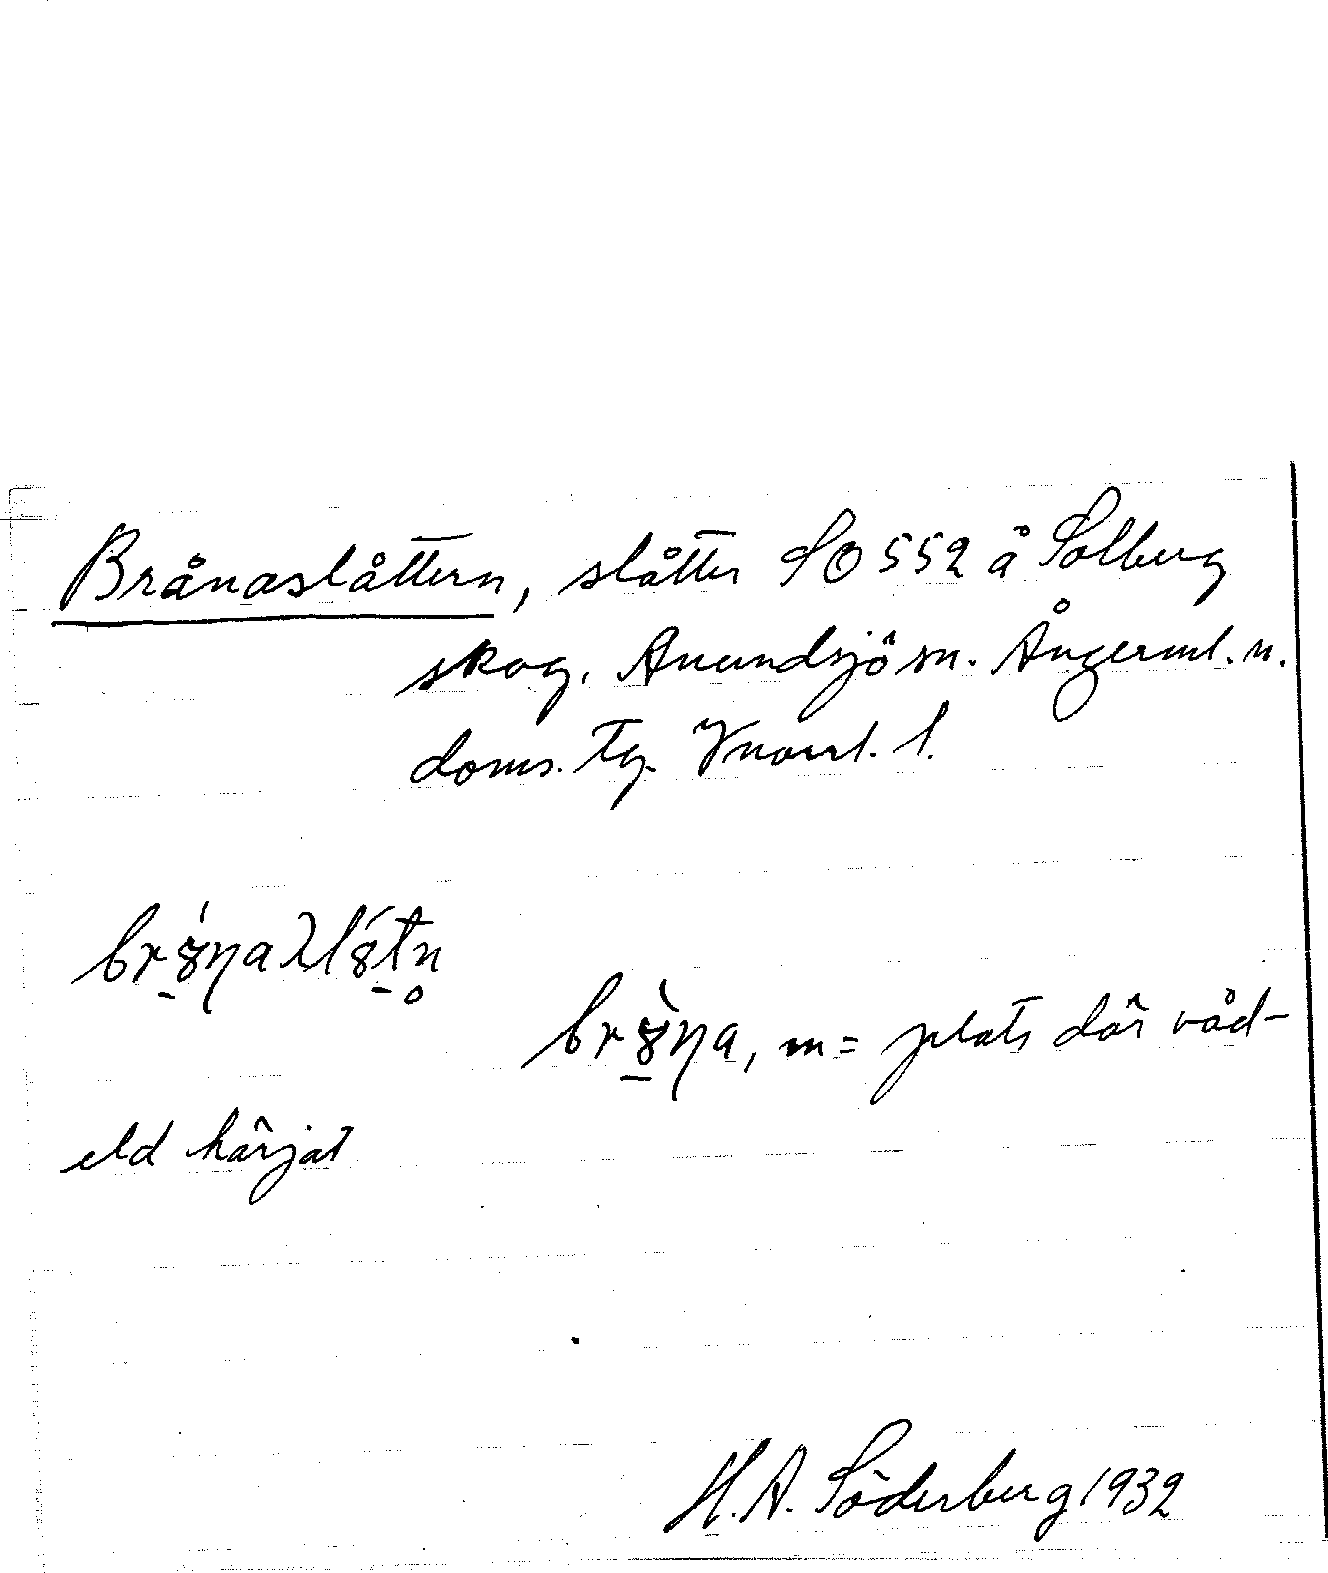 Brånaslåttern, slåtter SO 552 å Solberg
skog, Anundsjö sn. Ångerml. n.
doms. Tg. Vnorrl. l.
m = plats där våd-
eld härjat
H.A. Söderberg 1932